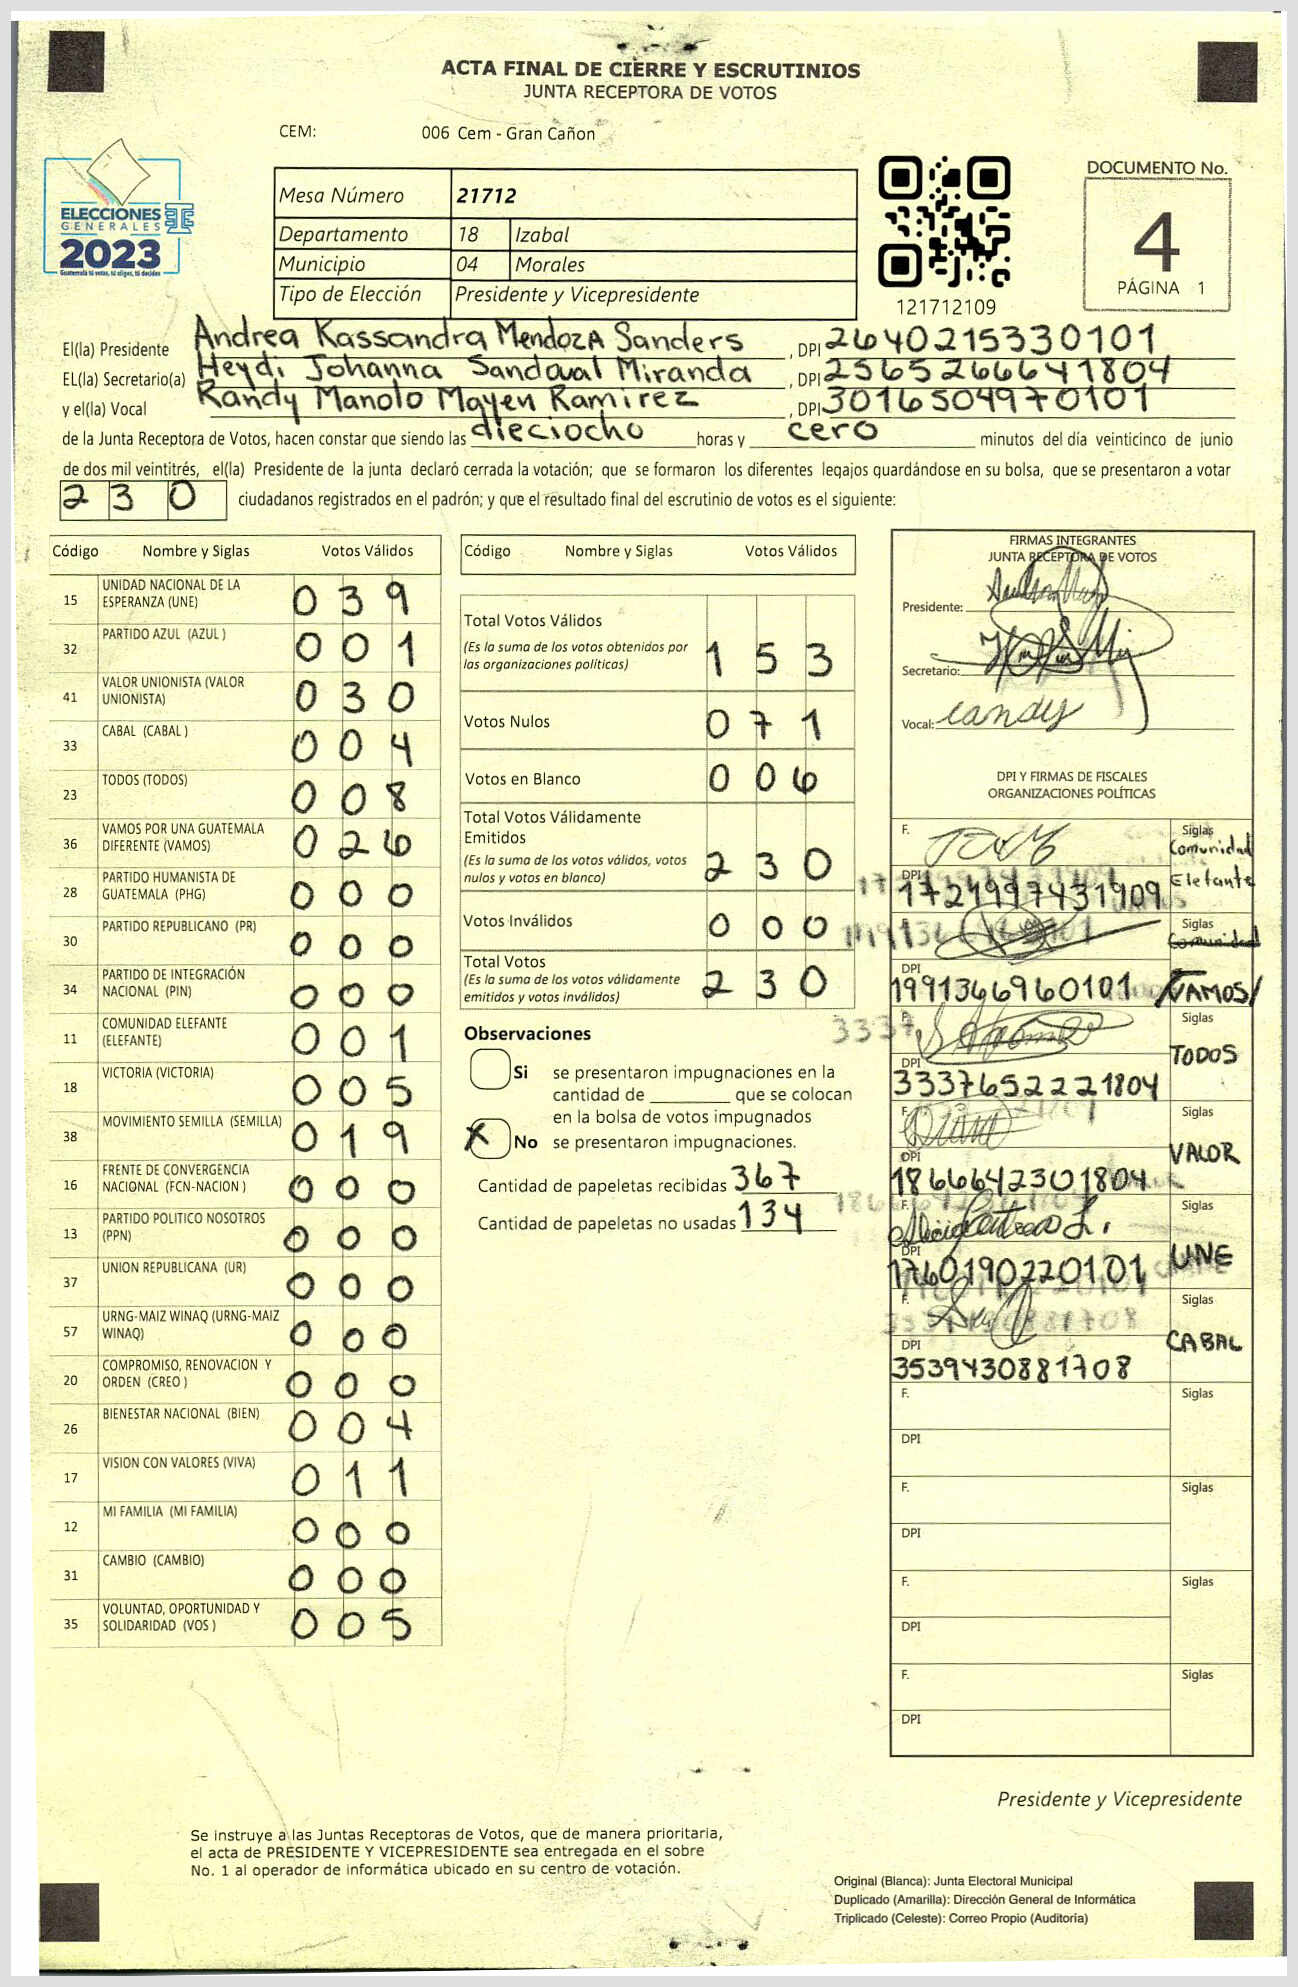 ACTA FINAL DE CIERRE Y ESCRUTINIOS
JUNTA RECEPTORA DE VOTOS
CEM: 006 Cem - Gran Cañon
ELECCIONES
GENERALES
2023
Guatemala tú votas, tú eliges, tú decides
Mesa Número 21712
Departamento 18 Izabal
Municipio 04 Morales
Tipo de Elección Presidente y Vicepresidente
121712109
DOCUMENTO No.
4
PÁGINA 1
El(la) Presidente Andrea Kassandra Mendoza Sanders , DPI 2640215330101
EL(la) Secretario(a) Heydi Johanna Sandoval Miranda , DPI 2565266641804
y el(la) Vocal Randy Manolo Mayen Ramirez , DPI 3016504970101
de la Junta Receptora de Votos, hacen constar que siendo las dieciocho horas y cero minutos del día veinticinco de junio
de dos mil veintitrés, el(la) Presidente de la junta declaró cerrada la votación; que se formaron los diferentes legajos guardándose en su bolsa, que se presentaron a votar
230 ciudadanos registrados en el padrón; y que el resultado final del escrutinio de votos es el siguiente:
Código Nombre y Siglas Votos Válidos
15 UNIDAD NACIONAL DE LA ESPERANZA (UNE) 039
32 PARTIDO AZUL (AZUL ) 001
41 VALOR UNIONISTA (VALOR UNIONISTA) 030
33 CABAL (CABAL ) 004
23 TODOS (TODOS) 008
36 VAMOS POR UNA GUATEMALA DIFERENTE (VAMOS) 026
28 PARTIDO HUMANISTA DE GUATEMALA (PHG) 000
30 PARTIDO REPUBLICANO (PR) 000
34 PARTIDO DE INTEGRACIÓN NACIONAL (PIN) 000
11 COMUNIDAD ELEFANTE (ELEFANTE) 001
18 VICTORIA (VICTORIA) 005
38 MOVIMIENTO SEMILLA (SEMILLA) 019
16 FRENTE DE CONVERGENCIA NACIONAL (FCN-NACION ) 000
13 PARTIDO POLITICO NOSOTROS (PPN) 000
37 UNION REPUBLICANA (UR) 000
57 URNG-MAIZ WINAQ (URNG-MAIZ WINAQ) 000
20 COMPROMISO, RENOVACION Y ORDEN (CREO ) 000
26 BIENESTAR NACIONAL (BIEN) 004
17 VISION CON VALORES (VIVA) 011
12 MI FAMILIA (MI FAMILIA) 000
31 CAMBIO (CAMBIO) 000
35 VOLUNTAD, OPORTUNIDAD Y SOLIDARIDAD (VOS ) 005
Código Nombre y Siglas Votos Válidos
Total Votos Válidos
(Es la suma de los votos obtenidos por
las organizaciones políticas) 153
Votos Nulos 071
Votos en Blanco 006
Total Votos Válidamente
Emitidos
(Es la suma de los votos válidos, votos
nulos y votos en blanco) 230
Votos Inválidos 000
Total Votos
(Es la suma de los votos válidamente
emitidos y votos inválidos) 230
Observaciones
Si se presentaron impugnaciones en la
cantidad de ________ que se colocan
en la bolsa de votos impugnados
X No se presentaron impugnaciones.
Cantidad de papeletas recibidas 367
Cantidad de papeletas no usadas 134
FIRMAS INTEGRANTES
JUNTA RECEPTORA DE VOTOS
Presidente:
Secretario:
Vocal: Randy
DPI Y FIRMAS DE FISCALES
ORGANIZACIONES POLÍTICAS
F. Siglas Comunidad
DPI 1724997431909 Elefante
F. Siglas Comunidad
DPI 1991366960101 VAMOS
F. Siglas
DPI 3337652221804 TODOS
F. Siglas
DPI 1866642301804 VALOR
F. Siglas
DPI 1760190220101 UNE
F. Siglas
DPI 3539430881708 CABAL
F. Siglas
DPI
F. Siglas
DPI
F. Siglas
DPI
F. Siglas
DPI
Presidente y Vicepresidente
Se instruye a las Juntas Receptoras de Votos, que de manera prioritaria,
el acta de PRESIDENTE Y VICEPRESIDENTE sea entregada en el sobre
No. 1 al operador de informática ubicado en su centro de votación.
Original (Blanca): Junta Electoral Municipal
Duplicado (Amarilla): Dirección General de Informática
Triplicado (Celeste): Correo Propio (Auditoría)